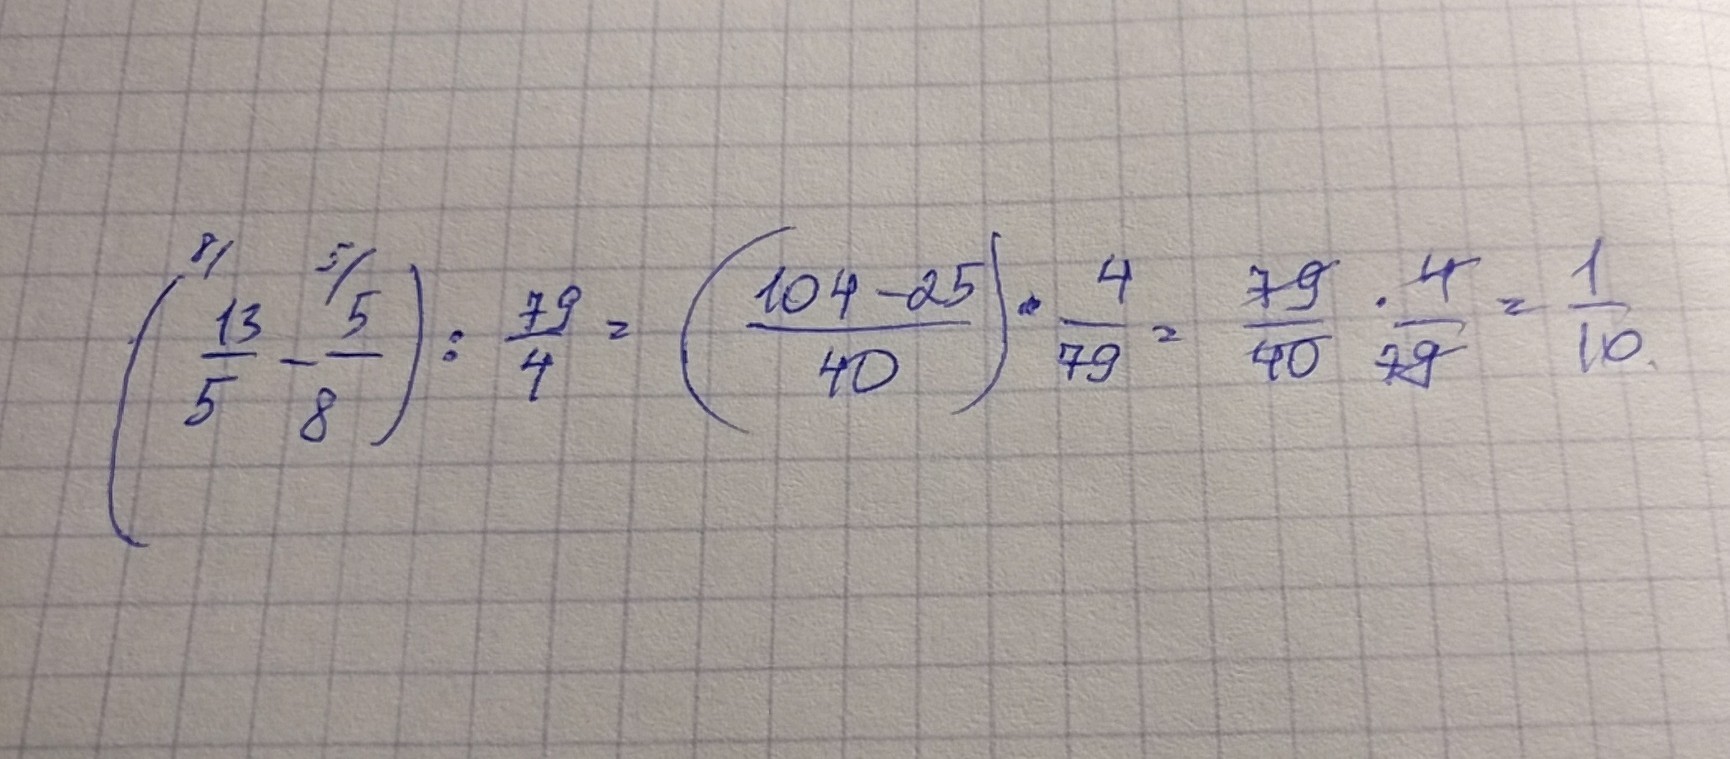 (8/ 13/5 - 5/ 5/8) : 79/4 = (104-25/40) · 4/79 = 79/40 · 4/79 = 1/10.